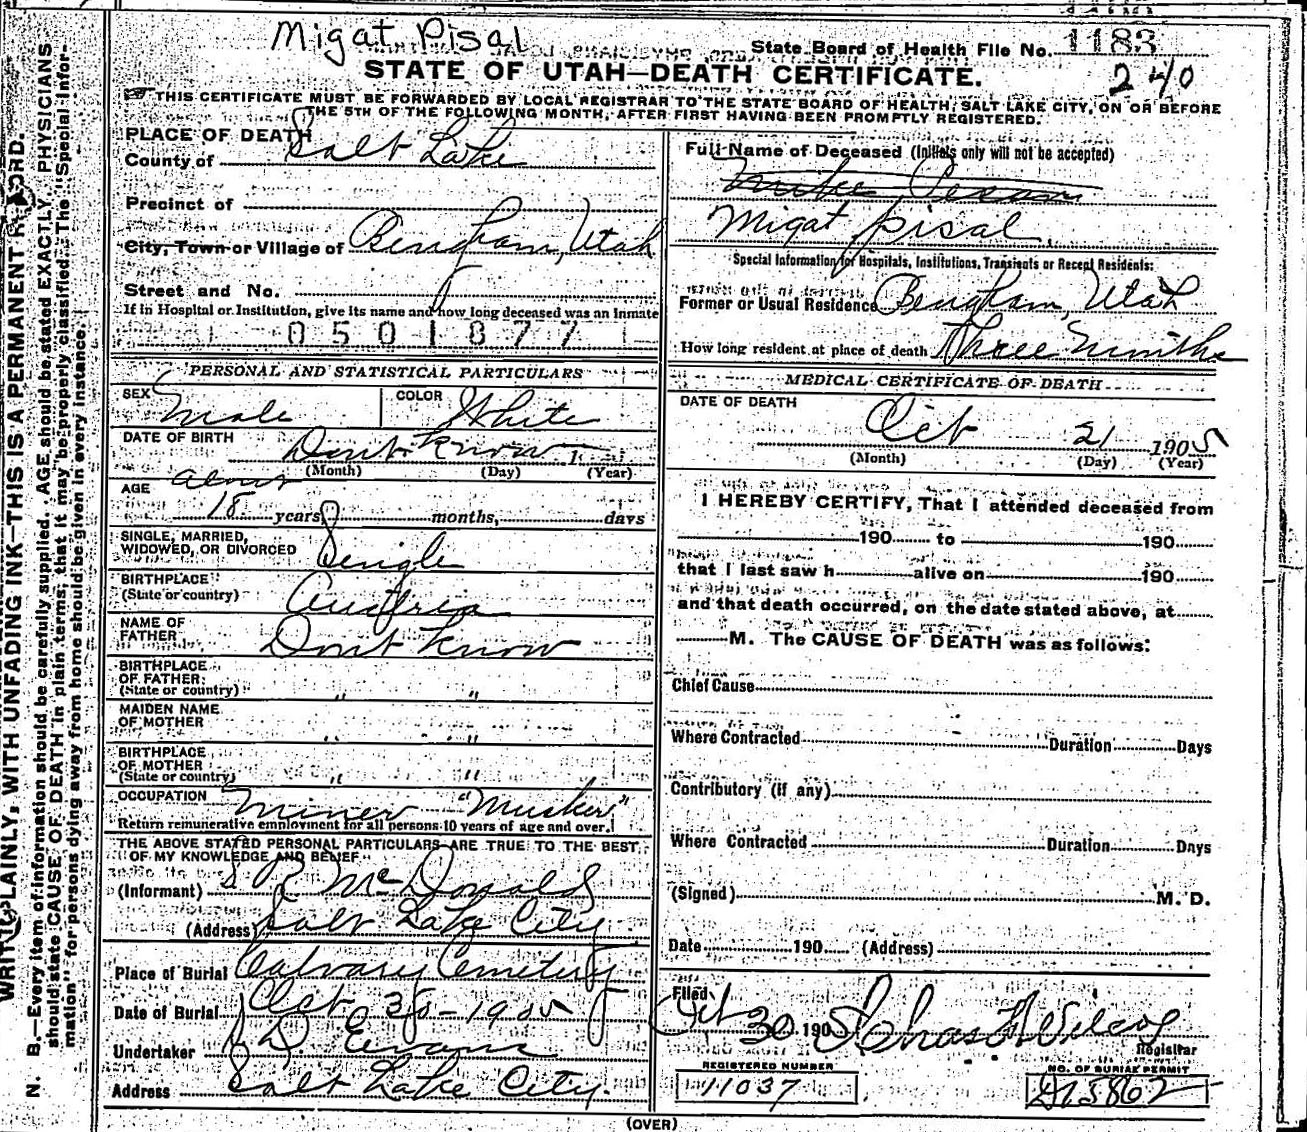 Migat Pisal
State Board of Health File No. 1183
240
STATE OF UTAH—DEATH CERTIFICATE.
THIS CERTIFICATE MUST BE FORWARDED BY LOCAL REGISTRAR TO THE STATE BOARD OF HEALTH, SALT LAKE CITY, ON OR BEFORE
THE 5TH OF THE FOLLOWING MONTH, AFTER FIRST HAVING BEEN PROMPTLY REGISTERED.
PLACE OF DEATH
County of Salt Lake
Precinct of
City, Town or Village of Bengham, Utah
Street and No.
If in Hospital or Institution, give its name and how long deceased was an Inmate
0501877
PERSONAL AND STATISTICAL PARTICULARS
SEX Male COLOR White
DATE OF BIRTH Dont Know 1
(Month) (Day) (Year)
AGE about
18 years, months, days
SINGLE, MARRIED,
WIDOWED, OR DIVORCED Single
BIRTHPLACE
(State or country) Austria
NAME OF
FATHER Dont Know
BIRTHPLACE
OF FATHER
(State or country) " "
MAIDEN NAME
OF MOTHER " "
BIRTHPLACE
OF MOTHER
(State or country) " "
OCCUPATION Miner "Musker"
Return remunerative employment for all persons 10 years of age and over.
THE ABOVE STATED PERSONAL PARTICULARS ARE TRUE TO THE BEST
OF MY KNOWLEDGE AND BELIEF
(Informant) McDonald
(Address) Salt Lake City
Place of Burial Calvary Cemetery
Date of Burial Oct 30-1905
Undertaker D. Evans
Address Salt Lake City.
Full Name of Deceased (Initials only will not be accepted)
Mike
Migat Pisal
Special Information for Hospitals, Institutions, Transients or Recent Residents:
Former or Usual Residence Bengham, Utah
How long resident at place of death Three Months
MEDICAL CERTIFICATE OF DEATH
DATE OF DEATH
Oct 21 1905
(Month) (Day) (Year)
I HEREBY CERTIFY, That I attended deceased from
190 to 190
that I last saw h alive on 190
and that death occurred, on the date stated above, at
M. The CAUSE OF DEATH was as follows:
Chief Cause
Where Contracted Duration Days
Contributory (if any)
Where Contracted Duration Days
(Signed) M. D.
Date 190 (Address)
Filed
Oct 30 1905 Chas Wilcox
Registrar
REGISTERED NUMBER
11037
NO. OF BURIAL PERMIT
(OVER)
N. B.—Every item of information should be carefully supplied. AGE should be stated EXACTLY. PHYSICIANS
should state CAUSE OF DEATH in plain terms, that it may be properly classified. The "Special Infor-
mation" for persons dying away from home should be given in every instance.
PLAINLY, WITH UNFADING INK—THIS IS A PERMANENT